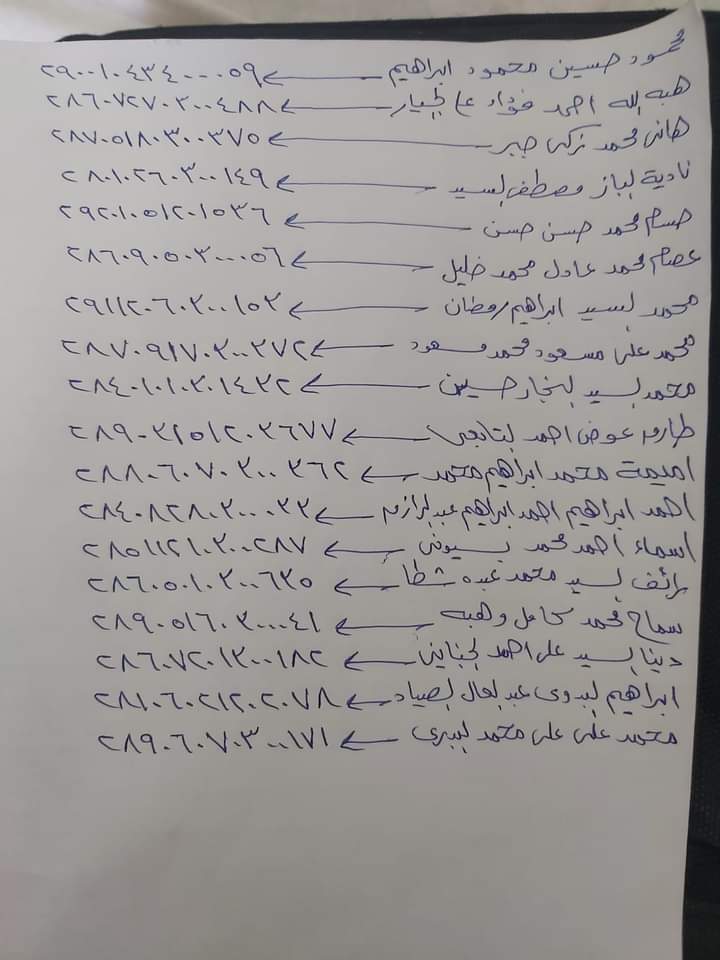 محمود حسين محمود ابراهيم ← ٢٩٠٠١٠٤٣٤٠٠٠٥٩
هبه الله احمد فؤاد على الخيار ← ٢٨٦٠٧٢٧٠٣٠٠٤٨٨
هانى محمد زكى جبر ← ٢٨٧٠٥١٨٠٣٠٠٣٧٥
نادية الباز مصطفى السيد ← ٢٨٠١٠٢٦٠٣٠٠١٤٩
حسام محمد حسن حسن ← ٢٩٢٠١٠٥١٢٠١٥٣٦
عصام محمد عادل محمد خليل ← ٢٨٦٠٩٠٥٠٣٠٠٠٥٦
محمد السيد ابراهيم رمضان ← ٢٩١١٢٠٦٠٣٠٠١٥٢
محمد على مسعود محمد مسعود ← ٢٨٧٠٩١٧٠٣٠٠٣٧٢
محمد السيد النجار حسين ← ٢٨٤٠١٠١٠٣٠١٤٣٢
طارق عوض احمد التابعى ← ٢٨٩٠٣٢٥١٢٠٣٦٧٧
اميمة محمد ابراهيم محمد ← ٢٨٨٠٦٠٧٠٣٠٠٣٦٢
احمد ابراهيم احمد ابراهيم عبدالرازق ← ٢٨٤٠٨٢٨٠٣٠٠٠٣٣
اسماء احمد محمد بسيونى ← ٢٨٥١١٢١٠٣٠٠٢٨٧
رائف السيد محمد عبده شطا ← ٢٨٦٠٥٠١٠٣٠٠٦٣٥
سماح محمد كامل وهبه ← ٢٨٩٠٥١٦٠٣٠٠٠٤١
دينا السيد على احمد الجناينى ← ٢٨٦٠٧٢٠١٣٠٠١٨٢
ابراهيم البدوى عبدالعال الصياد ← ٢٨١٠٦٠٢١٢٠٢٠٧٨
محمد على على محمد البيرى ← ٢٨٩٠٦٠٧٠٣٠٠١٧١